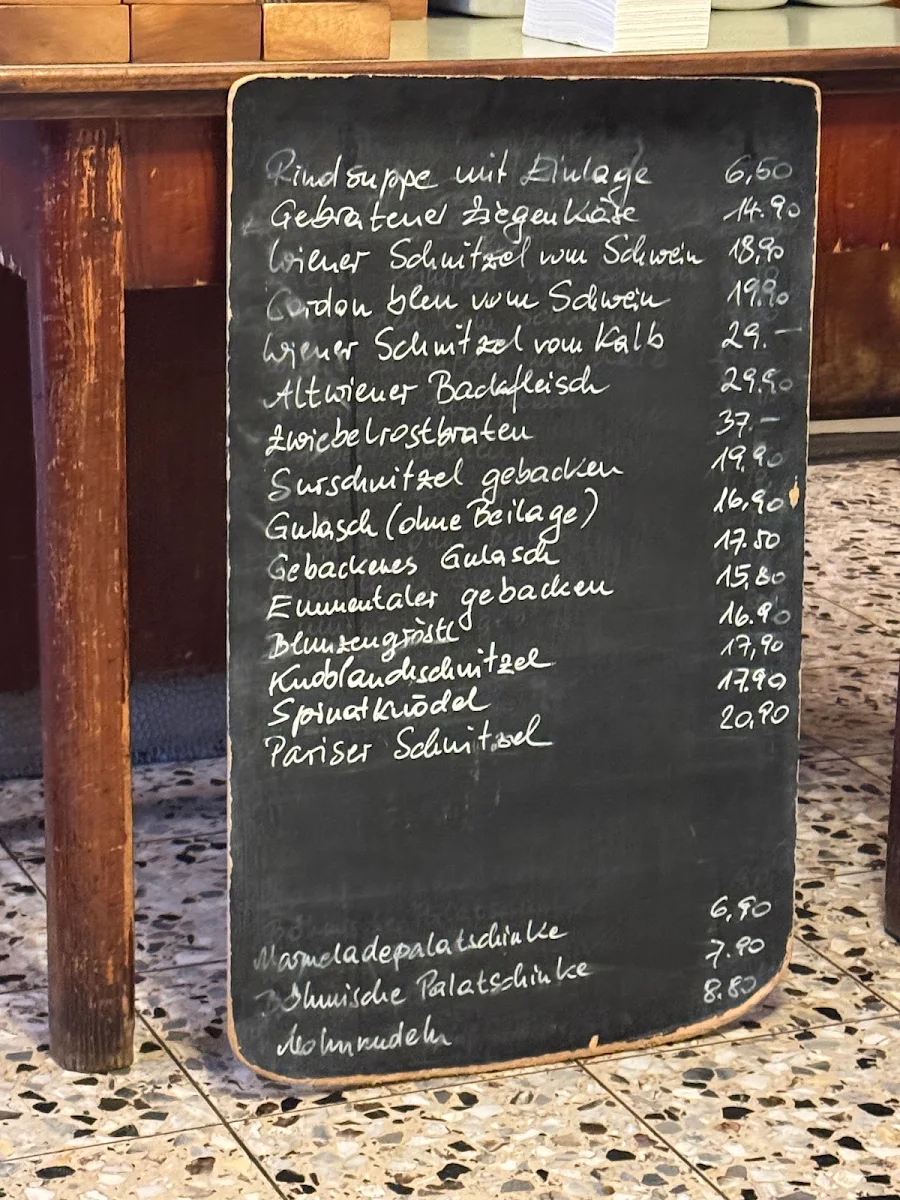 Rindsuppe mit Einlage 6,50
Gebratener Ziegenkäse 14.90
Wiener Schnitzel vom Schwein 18,90
Cordon bleu vom Schwein 19.90
Wiener Schnitzel vom Kalb 29.–
Altwiener Backfleisch 29.90
Zwiebelrostbraten 37.–
Surschnitzel gebacken 19.90
Gulasch (ohne Beilage) 16,90
Gebackenes Gulasch 17.50
Emmentaler gebacken 15,80
Blunzengröstl 16.90
Knoblauchschnitzel 17,90
Spinatknödel 17.90
Pariser Schnitzel 20,90
Marmeladepalatschinke 6,90
Böhmische Palatschinke 7.90
Mohnnudeln 8.80